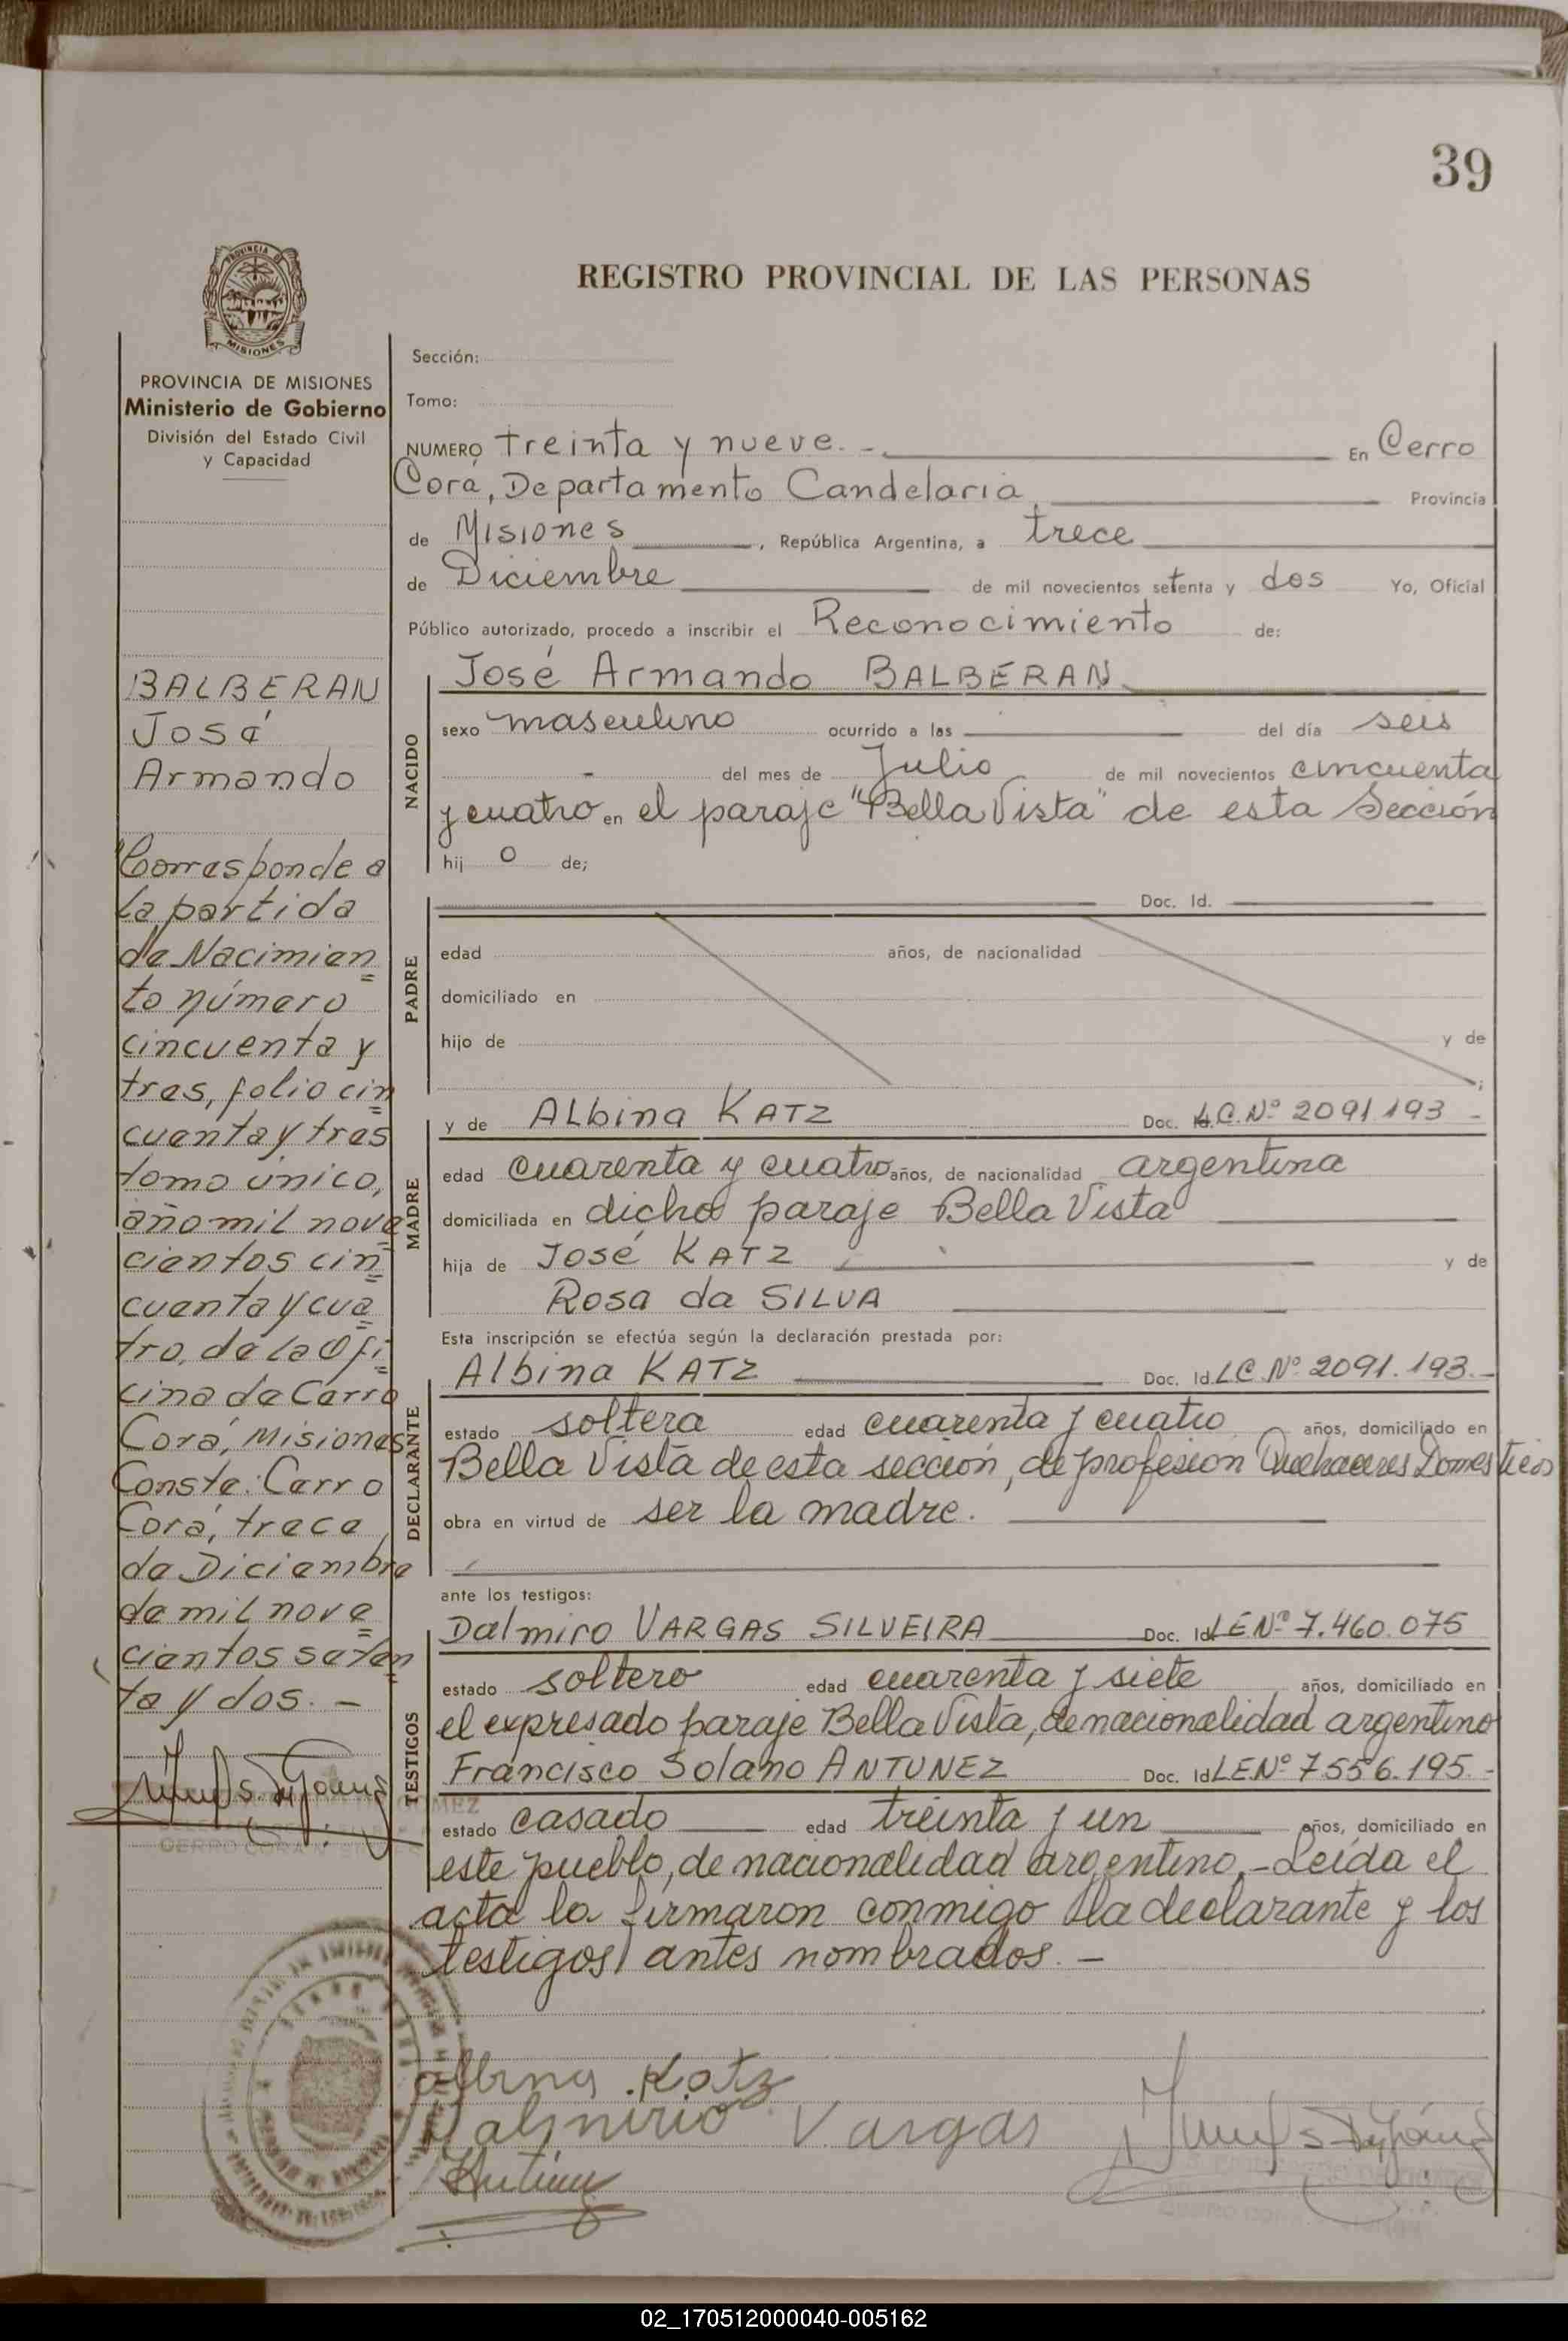 39
PROVINCIA DE
MISIONES
REGISTRO PROVINCIAL DE LAS PERSONAS
PROVINCIA DE MISIONES
Ministerio de Gobierno
División del Estado Civil
y Capacidad
BALBERAN
José
Armando
Corresponde a
la partida
de Nacimien=
to número
cincuenta y
tres, folio cin=
cuenta y tres
tomo único,
año mil nove=
cientos cin=
cuenta y cua=
tro, de la Ofi=
cina de Cerro
Corá, Misiones
Conste: Cerro
Corá, trece
de Diciembre
de mil nove=
cientos seten
ta y dos. -
Sección:
Tomo:
NUMERO treinta y nueve. - En Cerro
Corá, Departamento Candelaria Provincia
de Misiones, República Argentina, a trece
de Diciembre de mil novecientos setenta y dos Yo, Oficial
Público autorizado, procedo a inscribir el Reconocimiento de:
NACIDO
José Armando BALBERAN
sexo masculino ocurrido a las del día seis
- del mes de Julio de mil novecientos cincuenta
y cuatro en el paraje "Bella Vista" de esta Sección
hij o de;
PADRE
Doc. Id.
edad años, de nacionalidad
domiciliado en
hijo de y de
;
MADRE
y de Albina KATZ Doc. Id. L.C.Nº 2091.193 -
edad cuarenta y cuatro años, de nacionalidad argentina
domiciliada en dicho paraje Bella Vista
hija de José KATZ y de
Rosa da SILVA
Esta inscripción se efectúa según la declaración prestada por:
DECLARANTE
Albina KATZ Doc. Id. LC.Nº 2091.193.-
estado soltera edad cuarenta y cuatro años, domiciliado en
Bella Vista de esta sección, de profesion Quehaceres Domesticos
obra en virtud de ser la madre.
ante los testigos:
TESTIGOS
Dalmiro VARGAS SILVEIRA Doc. Id. LE Nº 7.460.075
estado soltero edad cuarenta y siete años, domiciliado en
el expresado paraje Bella Vista, de nacionalidad argentino
Francisco Solano ANTUNEZ Doc. Id. LE Nº 7556.195.-
estado casado edad treinta y un años, domiciliado en
este pueblo, de nacionalidad argentino.- Leída el
acta la firmaron conmigo la declarante y los
testigos antes nombrados. -
albina Katz
Dalmirio Vargas
02_170512000040-005162